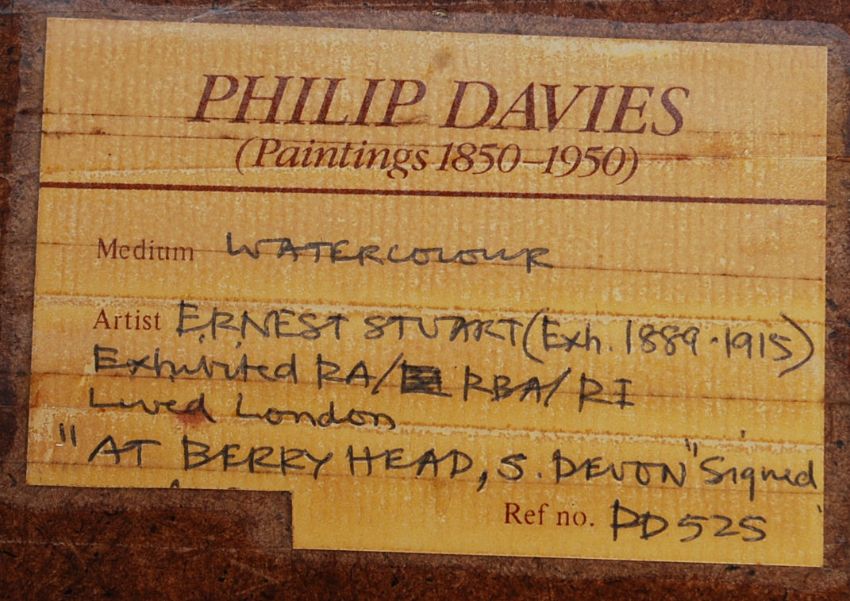 PHILIP DAVIES
(Paintings 1850–1950)
Medium WATERCOLOUR
Artist ERNEST STUART (Exh. 1889-1915)
Exhibited RA/ RBA/ RI
Lived London
"AT BERRY HEAD, S. DEVON" Signed
Ref no. PD525